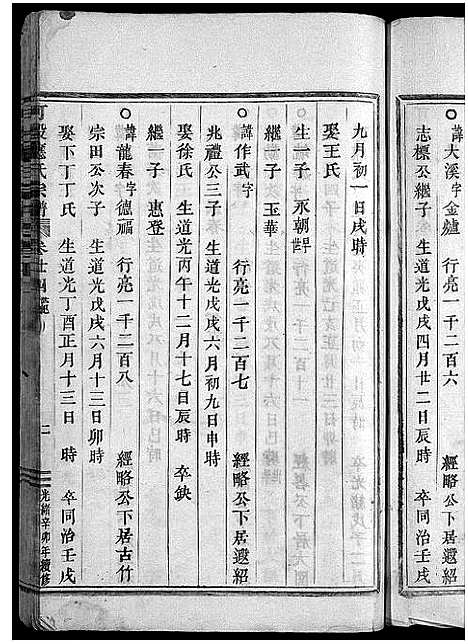 諱大溪字金鑪 行亮一千二百六
志標公繼子 生道光戊戌四月廿二日辰時 卒同治壬戌
九月初一日戌時
娶王氏
生一子 永朝
繼一子 玉華
諱作武字 行亮一千二百七 經略公下居遐紹
兆禮公三子 生道光戊戌六月初九日申時
娶徐氏 生道光丙午十二月十七日辰時 卒缺
繼一子 惠登
諱龍春字德福 行亮一千二百八 經略公下居古竹
宗田公次子 生道光戊戌六月十三日卯時
娶下丁丁氏 生道光丁酉正月十三日 時 卒同治壬戌
氏宗譜 卷廿四 二 光緒辛卯年續修